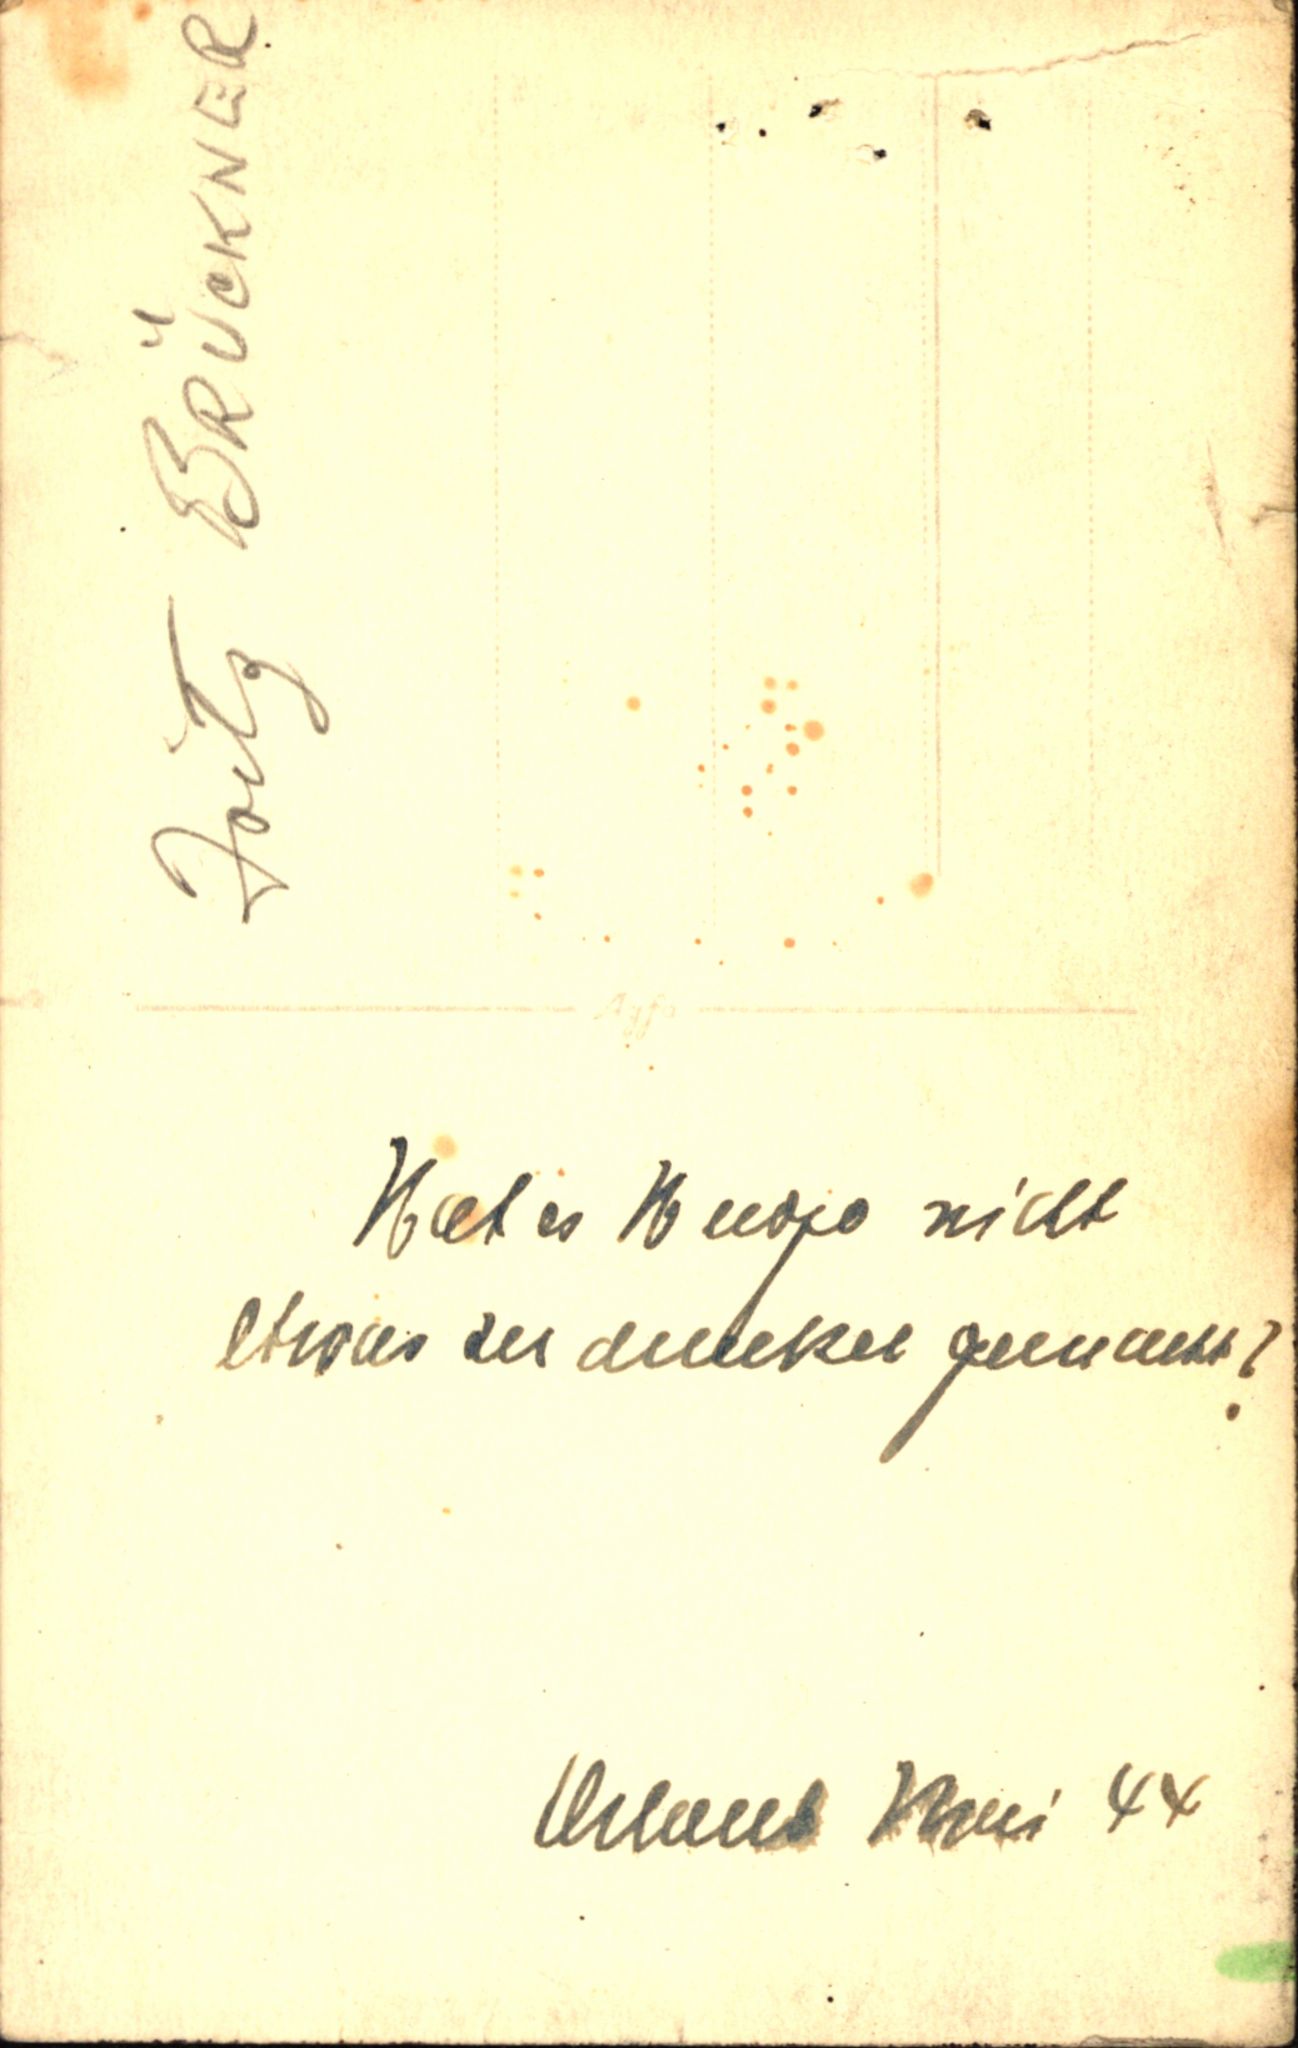 Fritz BRÜCKNER
Agfa
Hat es Hugo nicht
etwas zu dunkel gemacht?
Urlaub Mai 44